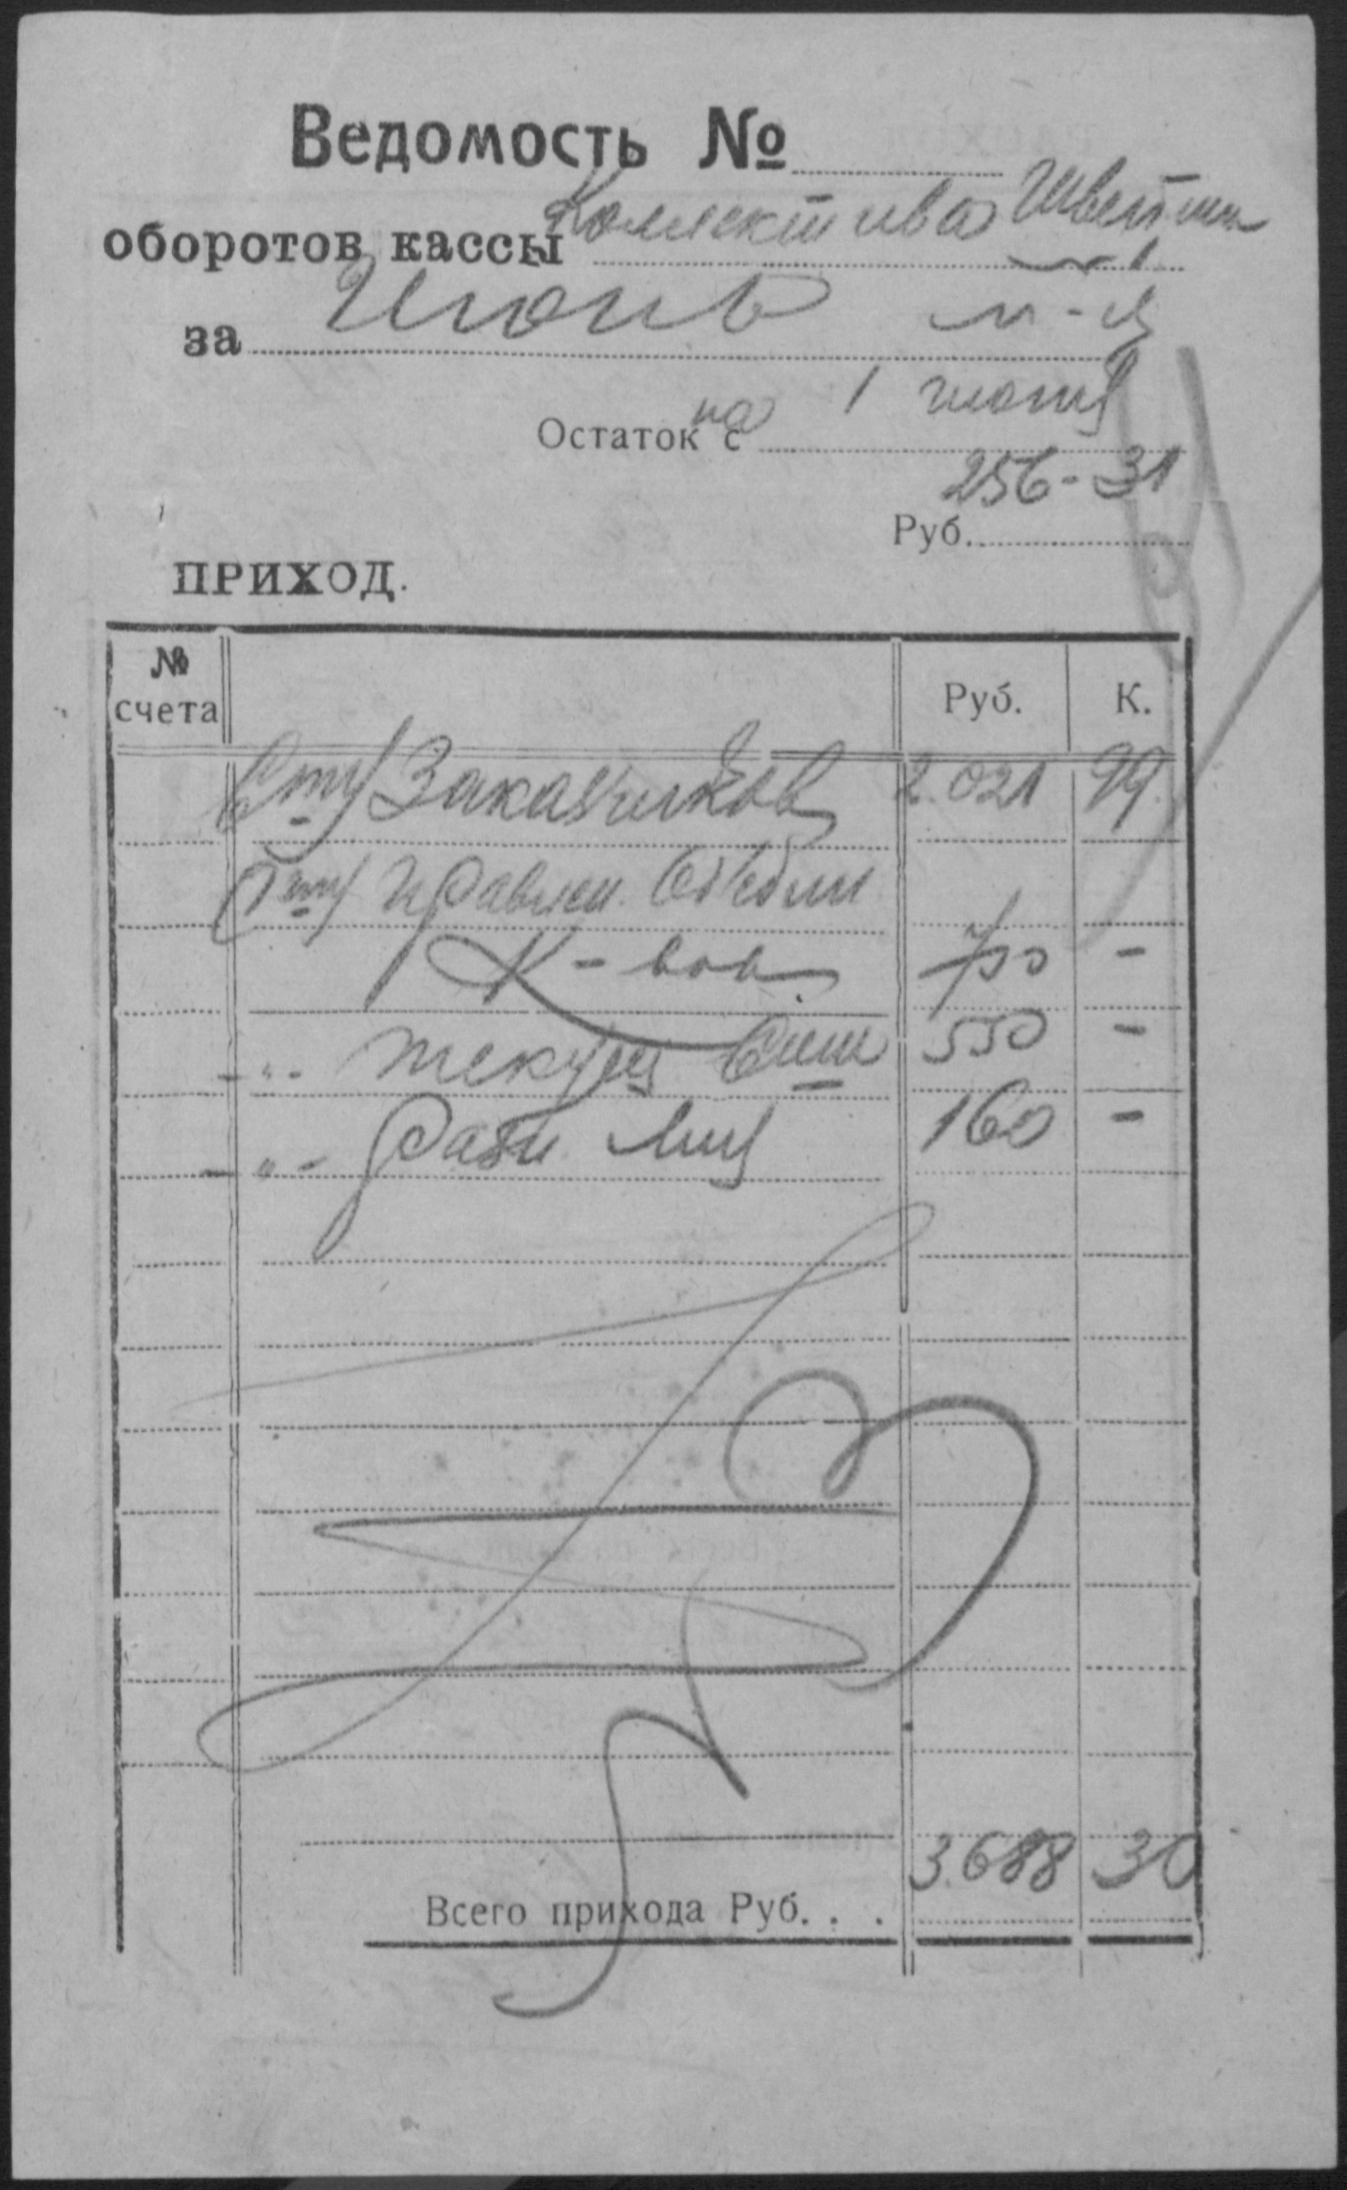 Ведомость №
оборотов кассы Коллектива
за Июнь м-ц
Остаток с на 1 июня
Руб. 256-31
ПРИХОД.
№ счета Руб. К.
Сту Заказчиков 2.021 99
Сту Правлен. Объедин
К-вов 700 -
-"- текущ Счет 550 -
-"- Разн. лиц 160 -
Всего прихода Руб. . . 3.688 30